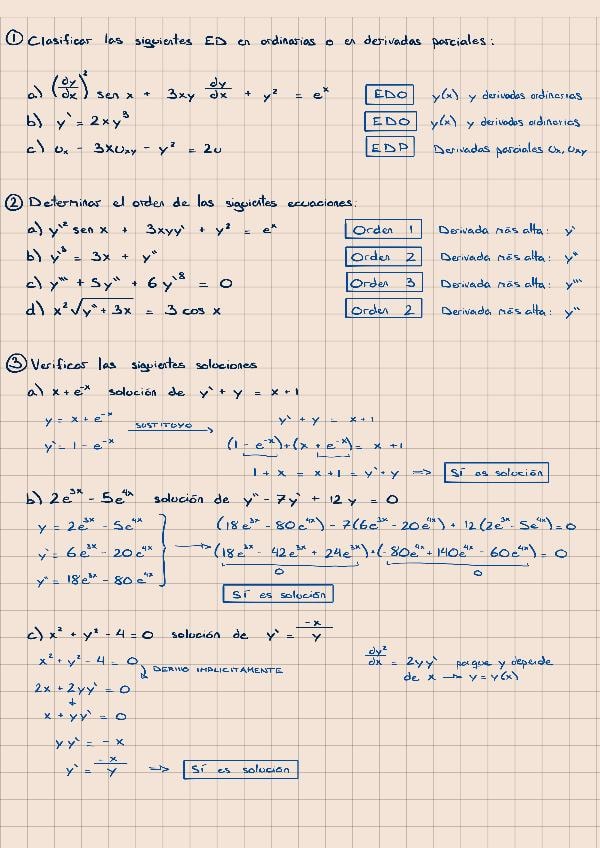 ① Clasificar las siguientes ED en ordinarias o en derivadas parciales:
a) (dy/dx)² sen x + 3xy dy/dx + y² = eˣ EDO y(x) y derivadas ordinarias
b) y' = 2xy³ EDO y(x) y derivadas ordinarias
c) uₓ - 3xuₓy - y² = 2u EDP Derivadas parciales uₓ, uxy
② Determinar el orden de las siguientes ecuaciones:
a) y'² sen x + 3xyy' + y² = eˣ Orden 1 Derivada más alta: y'
b) y'³ = 3x + y'' Orden 2 Derivada más alta: y''
c) y''' + 5y'' + 6y'⁸ = 0 Orden 3 Derivada más alta: y'''
d) x²√(y'' + 3x) = 3 cos x Orden 2 Derivada más alta: y''
③ Verificar las siguientes soluciones
a) x + e⁻ˣ solución de y' + y = x + 1
y = x + e⁻ˣ SUSTITUYO y' + y = x + 1
y' = 1 - e⁻ˣ (1 - e⁻ˣ) + (x + e⁻ˣ) = x + 1
1 + x = x + 1 = y' + y ⟹ Sí es solución
b) 2e³ˣ - 5e⁴ˣ solución de y'' - 7y' + 12y = 0
y = 2e³ˣ - 5e⁴ˣ (18e³ˣ - 80e⁴ˣ) - 7(6e³ˣ - 20e⁴ˣ) + 12(2e³ˣ - 5e⁴ˣ) = 0
y' = 6e³ˣ - 20e⁴ˣ → (18e³ˣ - 42e³ˣ + 24e³ˣ) + (-80e⁴ˣ + 140e⁴ˣ - 60e⁴ˣ) = 0
y'' = 18e³ˣ - 80e⁴ˣ 0 0
Sí es solución
c) x² + y² - 4 = 0 solución de y' = -x/y
x² + y² - 4 = 0 DERIVO IMPLICITAMENTE dy²/dx = 2yy' porque y depende
de x → y = y(x)
2x + 2yy' = 0
x + yy' = 0
yy' = -x
y' = -x/y ⟹ Sí es solución